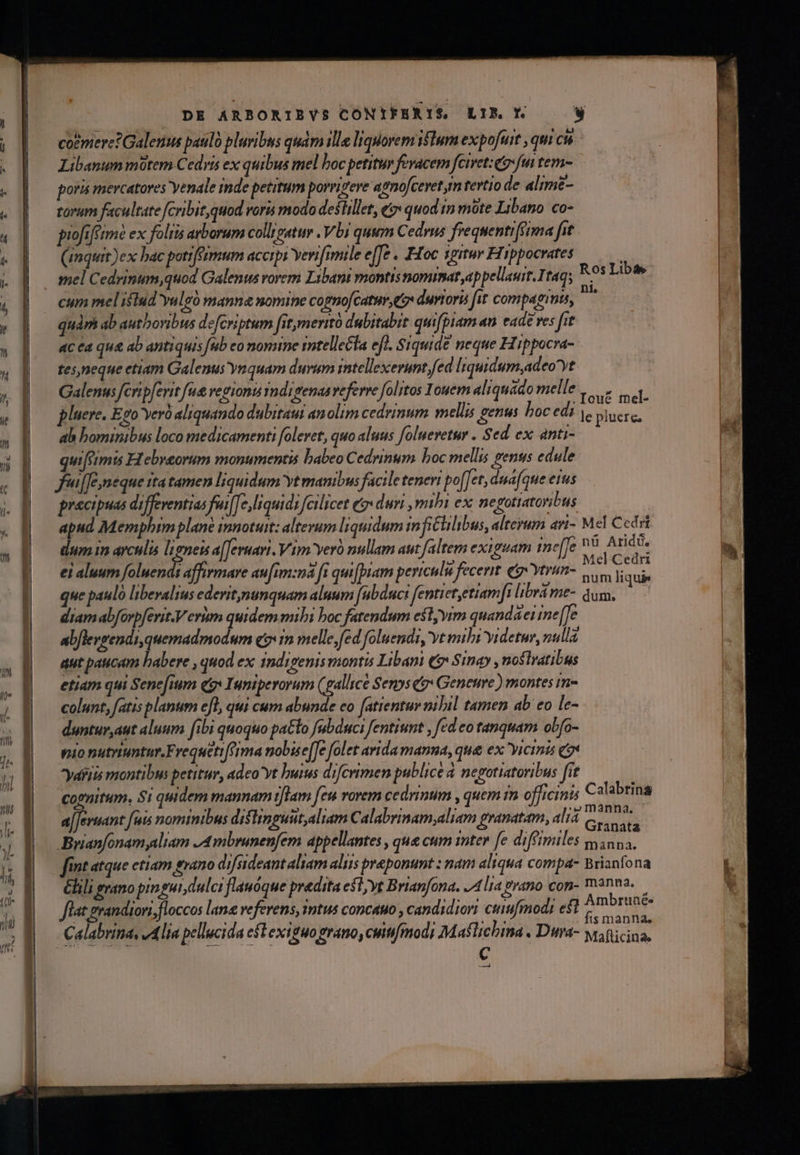 DE ARBORIBVS CONIFERIS. LIB. Y. 9
coëmere? Galenus paulò pluribus quàm ille liquorem istum exposuit, qui cũ
Libanum mõtem Cedris ex quibus mel hoc petitur feracem sciret: & sui tem-
poris mercatores venale inde petitum porrigere agnosceret, in tertio de alimẽ-
torum facultate scribit, quod roris modo destillet, & quod in mõte Libano co-
piosissimè ex foliis arborum colligatur. Vbi quum Cedrus frequentissima sit
(inquit) ex hac potissimum accipi verisimile esse. Hoc igitur Hippocrates
mel Cedrinum, quod Galenus rorem Libani montis nominat, appellauit. Itaq;
Ros Libã
ni.
cum mel istud vulgò mannæ nomine cognoscatur, & durioris sit compaginis,
quàm ab authoribus descriptum sit, meritò dubitabit quispiam an eadẽ res sit
ac ea quæ ab antiquis sub eo nomine intellecta est. Siquidẽ neque Hippocra-
tes, neque etiam Galenus vnquam durum intellexerunt, sed liquidum, adeo vt
Galenus scripserit suæ regionis indigenas referre solitos Iouem aliquãdo melle
Iouẽ mel-
le pluere.
pluere. Ego verò aliquando dubitaui an olim cedrinum mellis genus hoc edi
ab hominibus loco medicamenti soleret, quo aluus solueretur. Sed ex anti-
quissimis Hebræorum monumentis habeo Cedrinum hoc mellis genus edule
fuisse, neque ita tamen liquidum vt manibus facile teneri posset, duasque eius
præcipuas differentias fuisse, liquidi scilicet & duri, mihi ex negotiatoribus
apud Memphim planè innotuit: alterum liquidum in fictilibus, alterum ari-
Mel Cedri
nũ Aridũ.
dum in arculis ligneis asseruari. Vim verò nullam aut saltem exiguam inesse
ei aluum soluendi affirmare ausim: nã si quispiam periculũ fecerit & vtrun-
Mel Cedri
num liqui-
dum.
que paulò liberalius ederit, nunquam aluum subduci sentiet, etiamsi librã me-
diam absorpserit. Verùm quidem mihi hoc fatendum est, vim quandã ei inesse
abstergendi, quemadmodum & in melle, sed soluendi, vt mihi videtur, nullã
aut paucam habere, quod ex indigenis montis Libani & Sinay, nostratibus
etiam qui Senessum & Iuniperorum (gallicè Senys & Geneure) montes in-
colunt, satis planum est, qui cum abunde eo satientur nihil tamen ab eo le-
duntur, aut aluum sibi quoquo pacto subduci sentiunt, sed eo tanquam obso-
nio nutriuntur. Frequẽtissima nobis esse solet arida manna, quæ ex vicinis &
variis montibus petitur, adeo vt huius discrimen publicè à negotiatoribus sit
cognitum. Si quidem mannam istam seu rorem cedrinum, quem in officinis
Calabrina
manna.
asseruant suis nominibus distinguũt, aliam Calabrinam, aliam granatam, aliã
Granata
manna.
Briansonam, aliam Ambrunensem appellantes, quæ cum inter se dissimiles
sint atque etiam grano dissideant aliam aliis præponunt: nam aliqua compa-
Briansona
manna.
ctili grano pingui, dulci flauóque prædita est, vt Briansona. Alia grano con-
stat grandiori, floccos lanæ referens, intus concauo, candidiori cuiusmodi est
Ambrunẽ-
sis manna.
Calabrina, Alia pellucida est exiguo grano, cuiusmodi Mastichina. Dura-
Masticina.
C